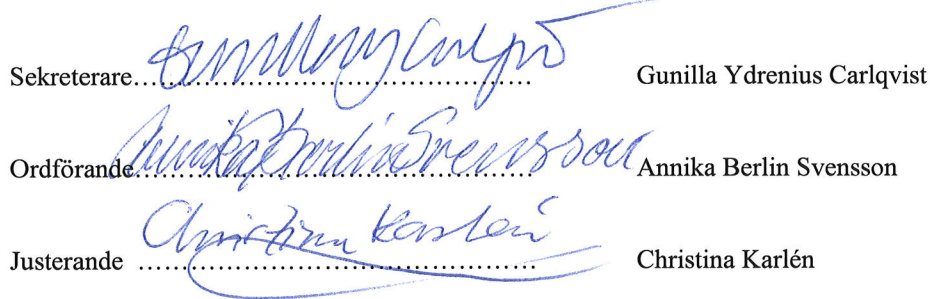 Sekreterare.......................................................... Gunilla Ydrenius Carlqvist
Ordförande Annika Berlin Svensson.......................................................... Annika Berlin Svensson
Justerande Christina Karlén.......................................................... Christina Karlén